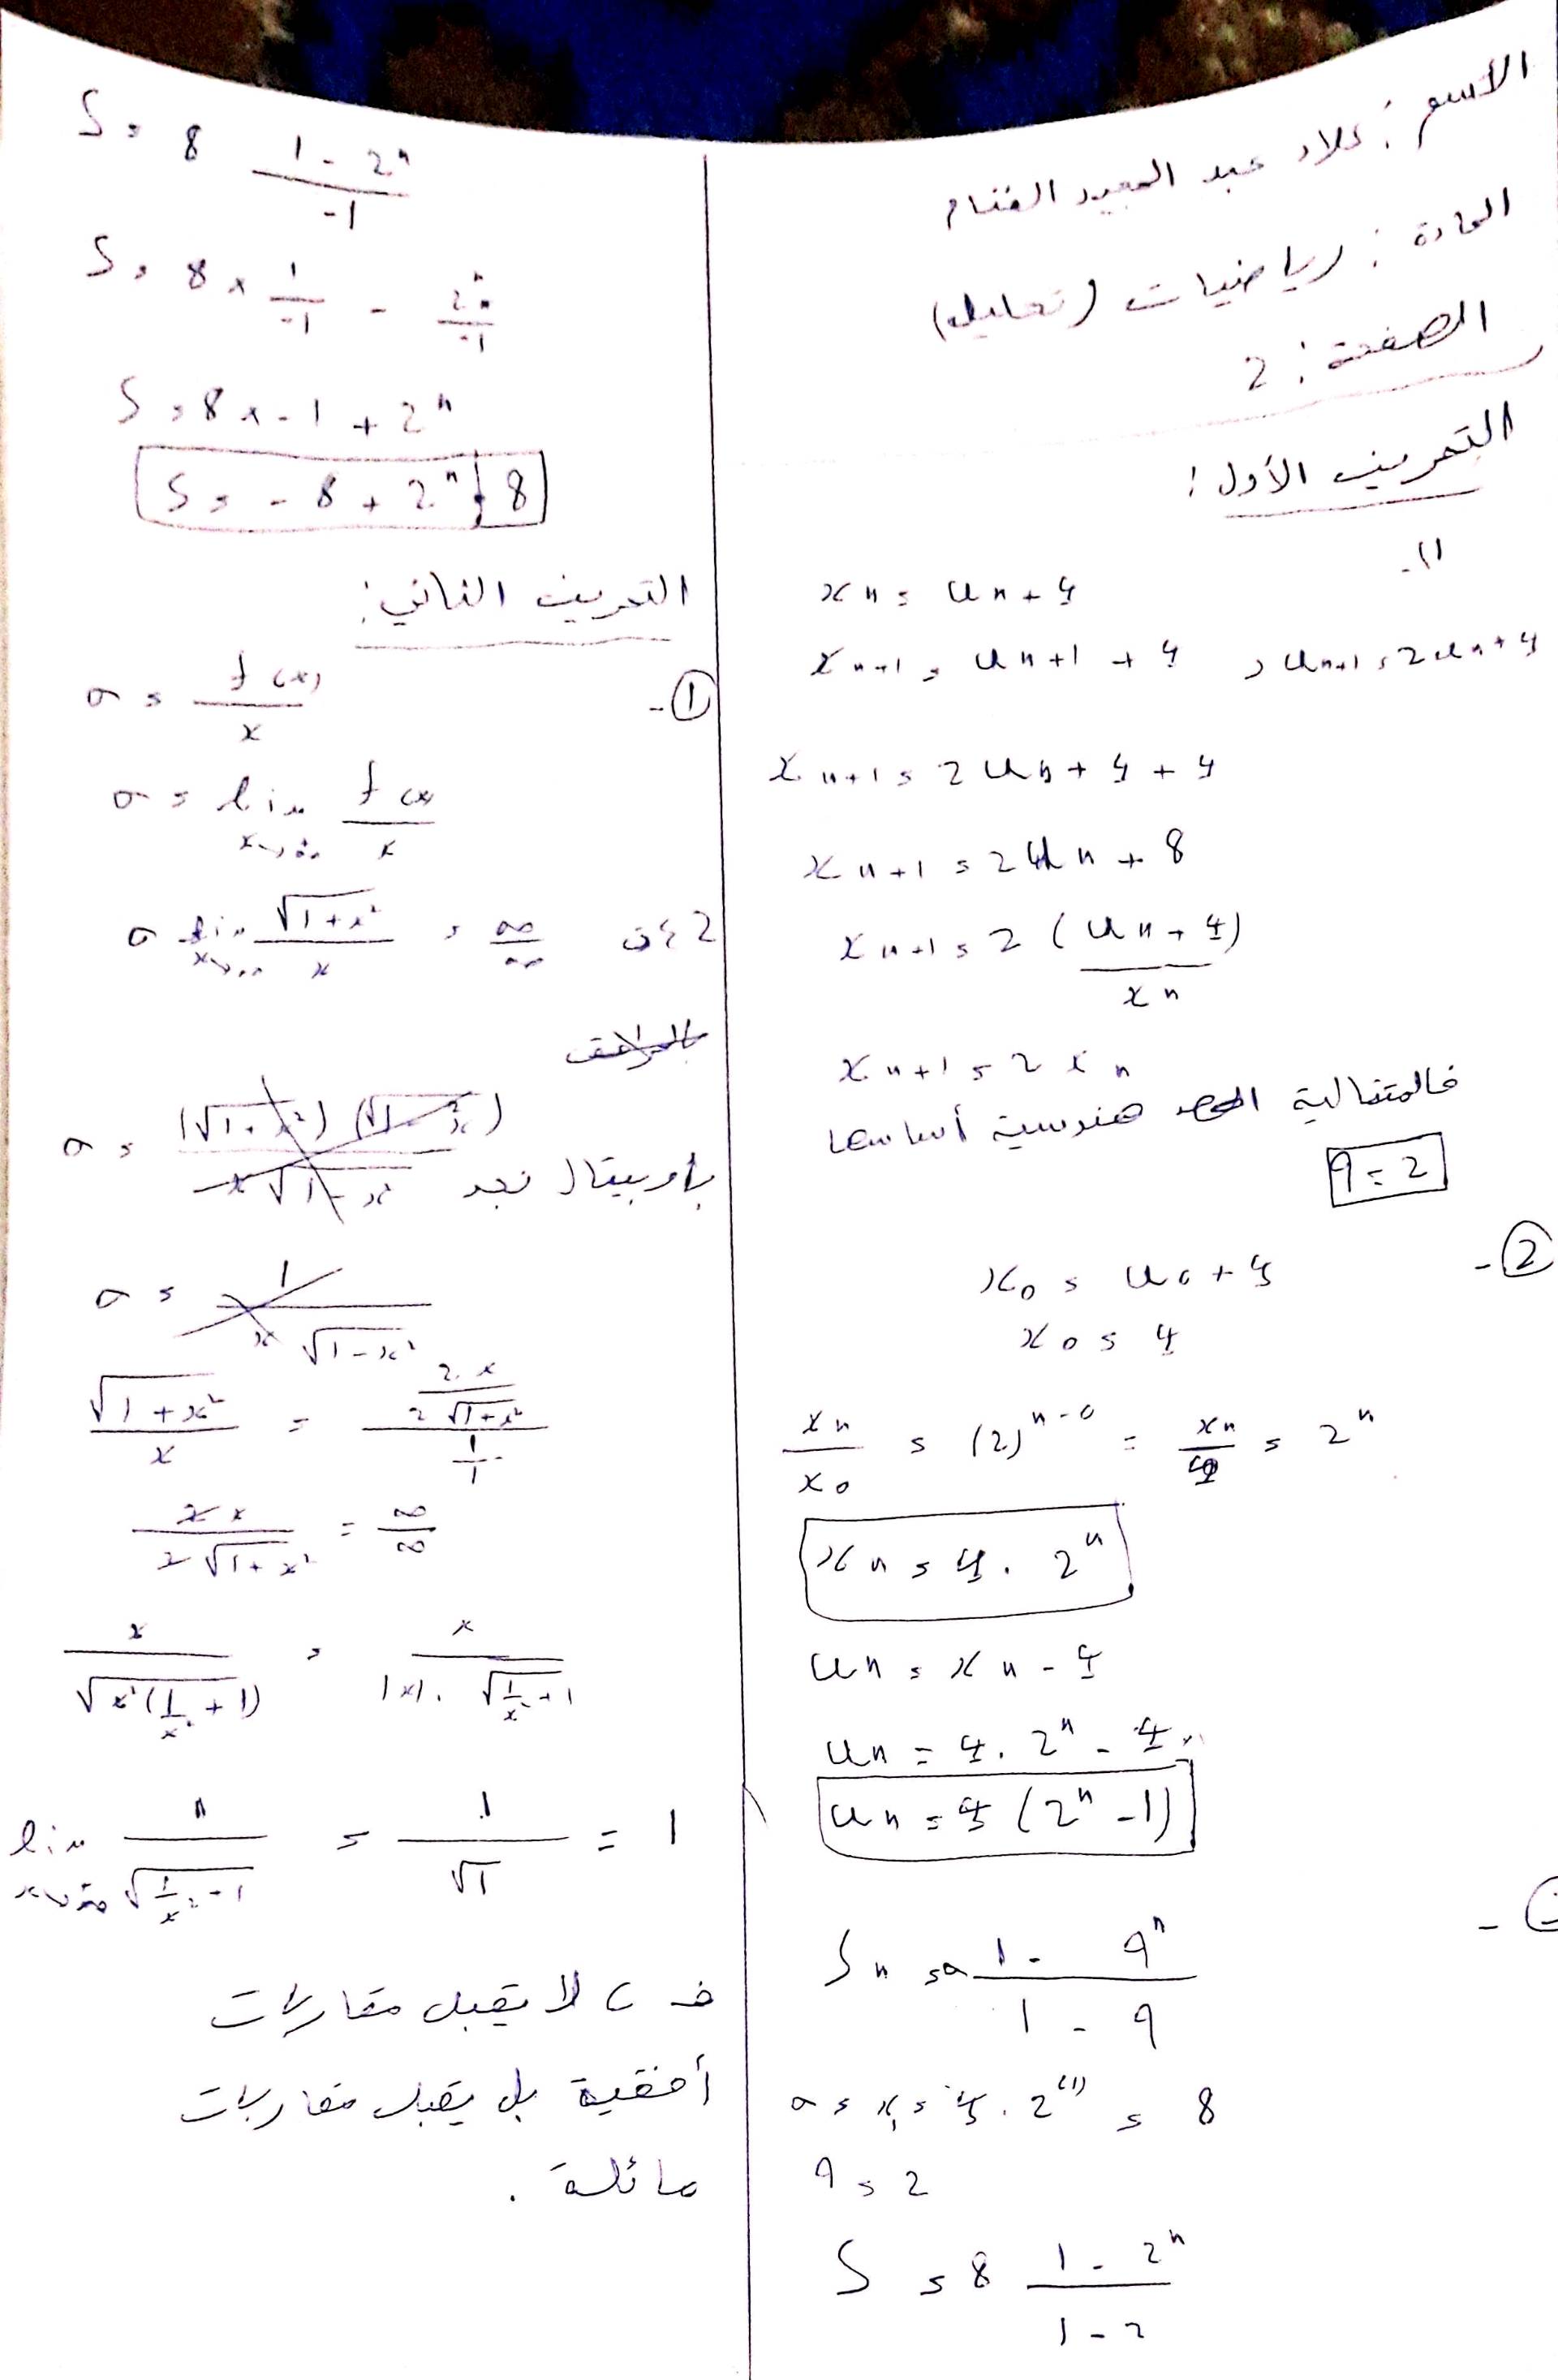 الأسم : علاء عبد المجيد الغنام
المادة : رياضيات (تحليل)
الصفحة : 2
التمرين الأول :
1-
xn = un + 4
xn+1 = un+1 + 4 , un+1 = 2un + 4
xn+1 = 2un + 4 + 4
xn+1 = 2un + 8
xn+1 = 2 (un + 4)
xn
xn+1 = 2xn
فالمتتالية هندسية أساسها
q = 2
2-
x0 = u0 + 4
x0 = 4
xn/x0 = (2)^n-0 = xn/4 = 2^n
xn = 4 . 2^n
un = xn - 4
un = 4 . 2^n - 4
un = 4 (2^n - 1)
Sn = a (1 - q^n)/(1 - q)
a = x1 = 4 . 2^(1) = 8
q = 2
S = 8 (1 - 2^n)/(1 - 2)
S = 8 (1 - 2^n)/-1
S = 8 × 1/-1 - 2^n/-1
S = 8 × -1 + 2^n
S = -8 + 2^n + 8
التمرين الثاني :
1-
a = f(x)/x
a = lim x→+∞ f(x)/x
a lim x→+∞ √(1+x²)/x = ∞/∞
بلوبيتال نجد
√(1+x²)/x = (2x/2√(1+x²))/(1/1)
2x/2√(1+x²) = ∞/∞
x/√(x²(1/x² + 1)) = x/(|x| . √(1/x² + 1))
lim x→+∞ 1/√(1/x² + 1) = 1/√1 = 1
فـ C لا يقبل مقاربات
أفقية بل يقبل مقاربات
مائلة .